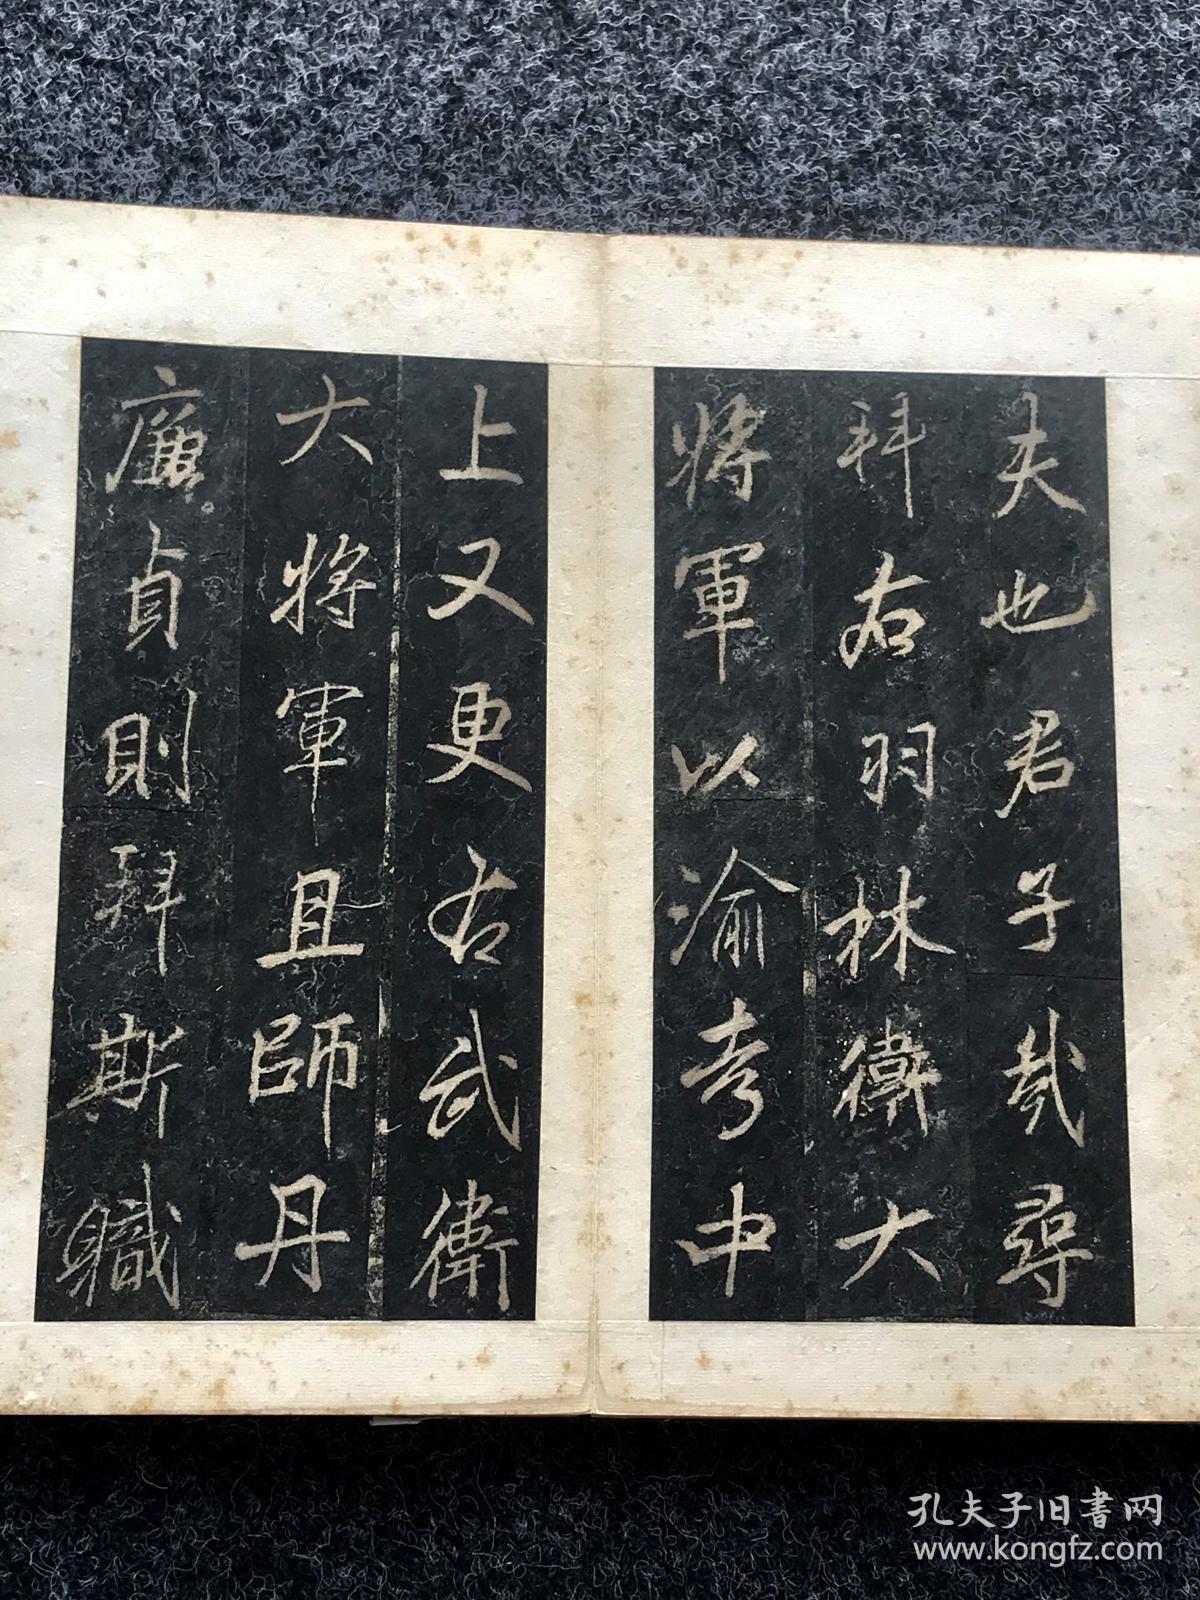 夫也君子哉尋
拜右羽林衛大
將軍以渝考中
上又更右武衛
大將軍且師丹
廉貞則拜斯職
孔夫子旧書网
www.kongfz.com